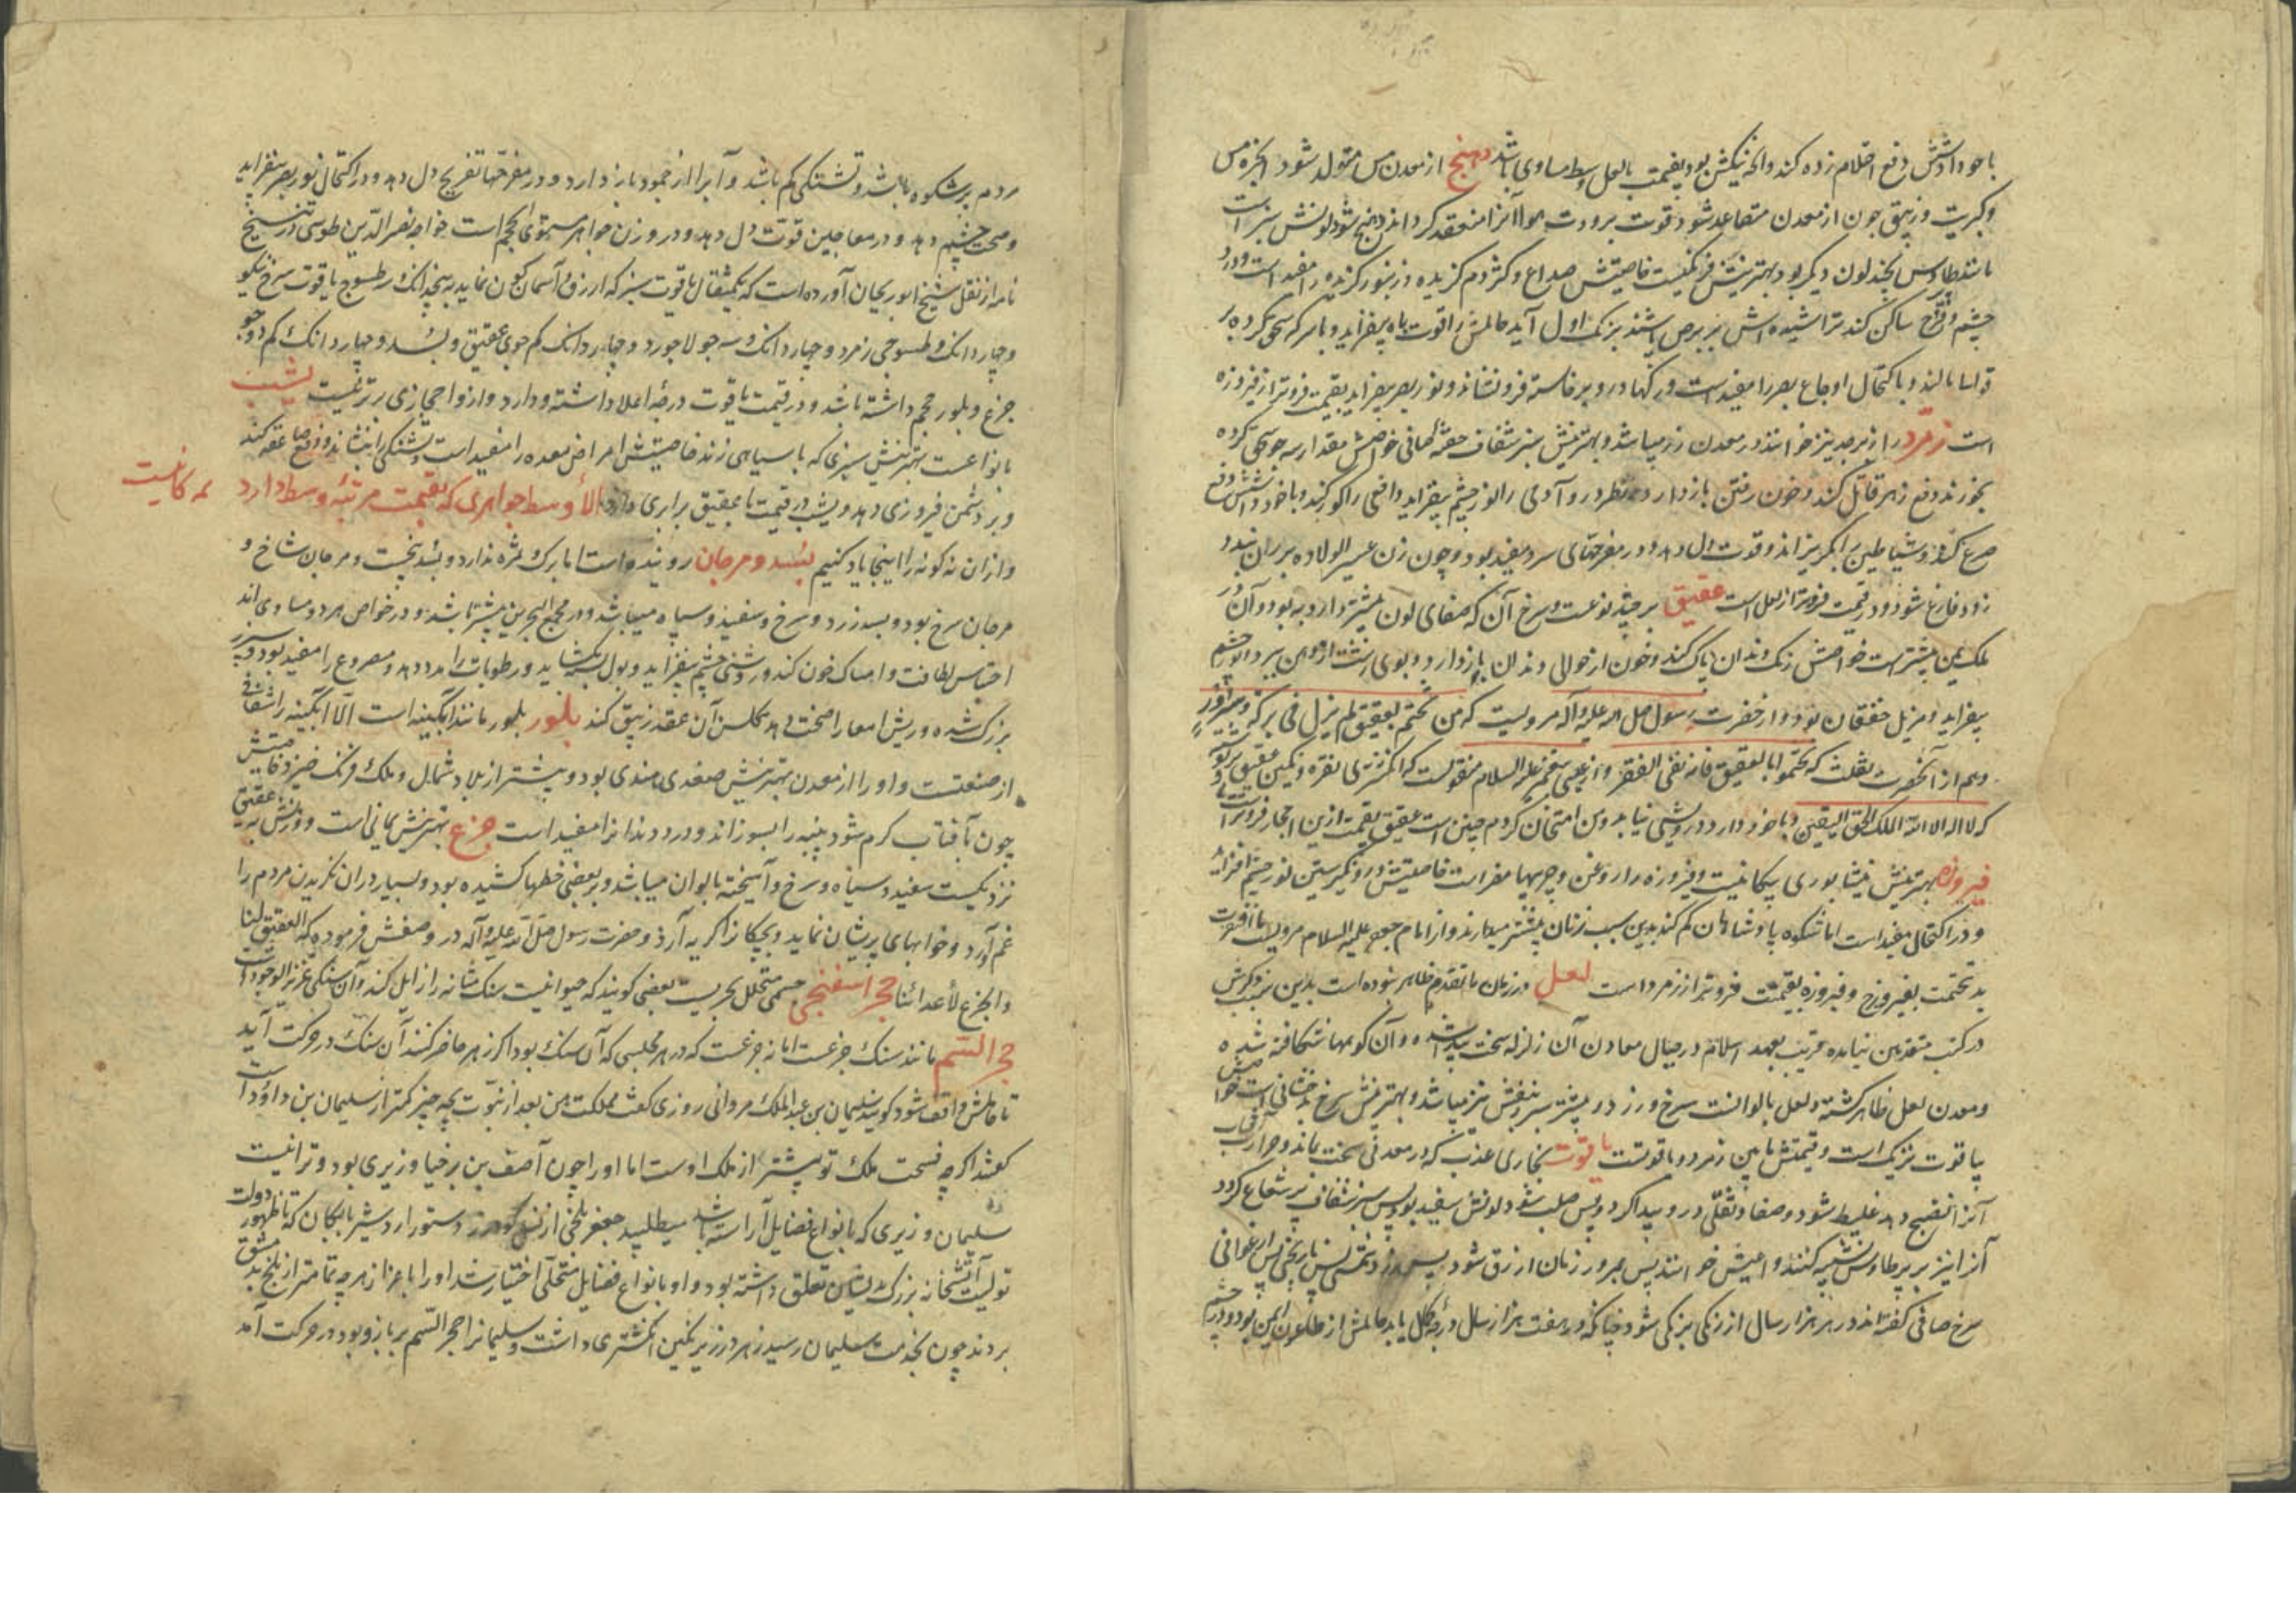 با خود داشتنش دفع احتلام زده کند و آنچه نیکش بود بقیمت بالعل وسط مساوی باشد دهنج از معدن مس متولد شود ابخره مس
و کبریت و زیبق چون از معدن متصاعد شود قوت برودت هوا آنرا منعقد گرداند دهنج شود لونش سبز است
مانند طاوس بچند لون دیگر بود بهترینش فرنگیست خاصیتش صداع و کژدم گزیده و زنبور گزیده را مفید است و درد
چشم و قولنج ساکن کند تراشیده اش بر برص باشند برنگ اول آید حاملش را قوت باه بیفزاید و با سرکه سحق کرده بر
قوابا مالند و باکتحال اوجاع بصر را مفید است و رگها درو برخاسته فرونشاند و نور بصر بیفزاید بقیمت فروتر از فیروزه
است زمرد را زبرجد نیز خوانند در معدن زر میباشد و بهترینش سبز شفاف خواصش مقدار سه جو سحق کرده
بخورند دفع زهر قاتل کند و خون رفتن باز دارد و نظر درو آدمی را نور چشم بیفزاید و افعی را کور کند و با خود داشتنش دفع
صرع کند و شیاطین را بگریزاند و قوت دل دهد و در مفرحهای سرد مفید بود و چون زن عسیر الولاده بر ران بندد
زود فارغ شود و در قیمت فروتر از لعل است عقیق بر چند نوعست و سرخ آن که صفای لون بیشتر دارد به بود و آن در
ملک یمن بیشتر است خواصش زنگ دندان پاک کند و خون از حوالی دندان باز دارد و بوی زشت از دهن ببرد و نور چشم
بیفزاید و مزیل خفقان بود و از حضرت رسول صلی الله علیه و آله مرویست که من تختم بعقیق لم یزل فی برکة و سرور
و هم از آنحضرت نقلست که تختموا بالعقیق فانه نفی الفقر و از عیسی پیغمبر علیه السلام منقولست که انگشتری نقره و نگین عقیق بر او
که لا اله الا الله الملک الحق الیقین با خود دارد درویشی نیابد و من امتحان کردم چنین است عقیق بقیمت ازین احجار فروتر است
فیروزه بهترینش نیشابوری پیکانیست و فیروزه را روغن و چربیها مضر است خاصیتش درو نگریستن نور چشم افزاید
و در اکتحال مفید است اما شکوه پادشاهان کم کند بدین سبب زنان بیشتر میدارند و از امام جعفر علیه السلام مرویست ما افتقرت
ید تختمت بفیروزج و فیروزه بقیمت فروتر از زمرد است لعل در زمان ما تقدم ظاهر نبوده است بدین سبب ذکرش
در کتب متقدمین نیامده قریب بعهد اسلام در جبال معادن آن زلزله سخت پیدا شده و آن کوهها شکافته شده
و معدن لعل ظاهر گشته و لعل بالوانست سرخ و زرد و بیشتر سبز و بنفش نیز میباشد و بهترینش سرخ بدخشانی است خواصش
بیاقوت نزدیک است و قیمتش مابین زمرد و یاقوتست یاقوت بخاری عذب که در معدنی سخت بماند و حرارت آفتاب
آنرا نضج دهد غلیظ شود و صفا و ثقلی درو پیدا گردد پس صلب شود لونش سفید بود پس سبز شفاف پر شعاع گردد
آنرا نیز بر پر طاوس تشبیه کنند و خوانند پس بمرور زمان ازرق شود پس زرد مشمشی پس نارنجی پس ارغوانی
سرخ صافی گفته اند در هر هزار سال از رنگی برنگی شود چنانکه در هفت هزار سال درجه کمال یابد حاملش از طاعون ایمن بود و در چشم
مردم پر شکوه باشد و تشنگی کم باشد و آب را از جمود باز دارد و در مفرحها تفریح دل دهد و در اکتحال نور بصر بیفزاید
و صحت چشم دهد و در معاجین قوت دل دهد و در وزن جواهر مستوی الحجم است خواجه نصیر الدین طوسی در تنسیخ
نامه از نقل شیخ ابو ریحان آورده است که یکمثقال یاقوت سبز که ازرق و آسمان گون نماید به پنجدانگ و طسوج یاقوت سرخ نیکو
و چهار دانگ و طسوجی زمرد و چهار دانگ و سه جو لاجورد و چهار دانگ کم جوی عقیق و بسد و چهار دانگ کم دو جو
جزع و بلور حجم داشته باشد و در قیمت یاقوت درجه اعلا داشته و دارد و از احجاری برتر نیست یشب
بانواعست بهترینش سبزی که با سیاهی زند خاصیتش امراض معده را مفید است و تشنگی را بنشاند و دفع صاعقه کند
و بر دشمن فیروزی دهد و یشب در قیمت با عقیق برابری دارد الأوسط جواهری که بقیمت مرتبه وسط دارد
مه کانیست
و از ان نه گونه را اینجا یاد کنیم بسد و مرجان روینده است اما برگ و ثمره ندارد و بسد بیخست و مرجان شاخ و
مرجان سرخ بود و بسد زرد و سرخ و سفید و سیاه میباشد و در مجمع البحرین بیشتر باشد و در خواص هر دو مساوی اند
احتباس لطافت و امساک خون کند و روشنی چشم بیفزاید و بول بگشاید و رطوبات را مدد دهد و مصروع را مفید بود و سپرز
بزرگ شده و ریش امعا را صحت دهد کلس آن عقد زیبق کند بلور بلور مانند آبگینه است الا آبگینه را شفافی
از صنعتست و او را از معدن بهترینش صغدی هندی بود و بیشتر از بلاد شمال و ملک فرنگ خیزد خاصیتش
چون بآفتاب گرم شود پنبه را بسوزاند و درد دندانرا مفید است جزع بهترینش یمانی است و وزنش به عقیق
نزدیکست سفید و سیاه و سرخ و آمیخته بالوان میباشد و بر بعضی خطها کشیده بود و بسیار دران نگریدن مردم را
غم آورد و خوابهای پریشان نماید و بچکانرا گریه آرد و حضرت رسول صلی الله علیه و آله در وصفش فرموده که العقیق لنا
و الجزع لأعدائنا حجر اسفنجی جسمی متخلل بحریست بعضی گویند که حیوانیست سنگ مثانه را زایل کند و آن سنگی عزیز الوجود است
حجر السم مانند سنگ جزعست اما نه جزعست که در هر مجلسی که آن سنگ بود اگر زهر حاضر کنند آن سنگ در حرکت آید
تا حاملش واقف شود گویند سلیمان بن عبد الملک مروانی روزی گفت مملکت من بعد از نبوت بچه چیز کمتر از سلیمان بن داود است
گفتند اگر چه فسحت ملک تو بیشتر از ملک اوست اما او را چون آصف بن برخیا وزیری بود و ترا نیست
سلیمان وزیری که بانواع فضایل آراسته باشد میطلبید جعفر بلخی از نسل گودرز دستور اردشیر بابکان که تا ظهور دولت
تولیت آتشخانه بزرگ بدیشان تعلق داشته بود و او بانواع فضایل متحلی اختیار شد او را باعزاز هر چه تمامتر از بلخ بدمشق
بردند چون بخدمت سلیمان رسید زهر در زیر نگین انگشتری داشت و سلیمانرا حجر السم بر بازو بود در حرکت آمد